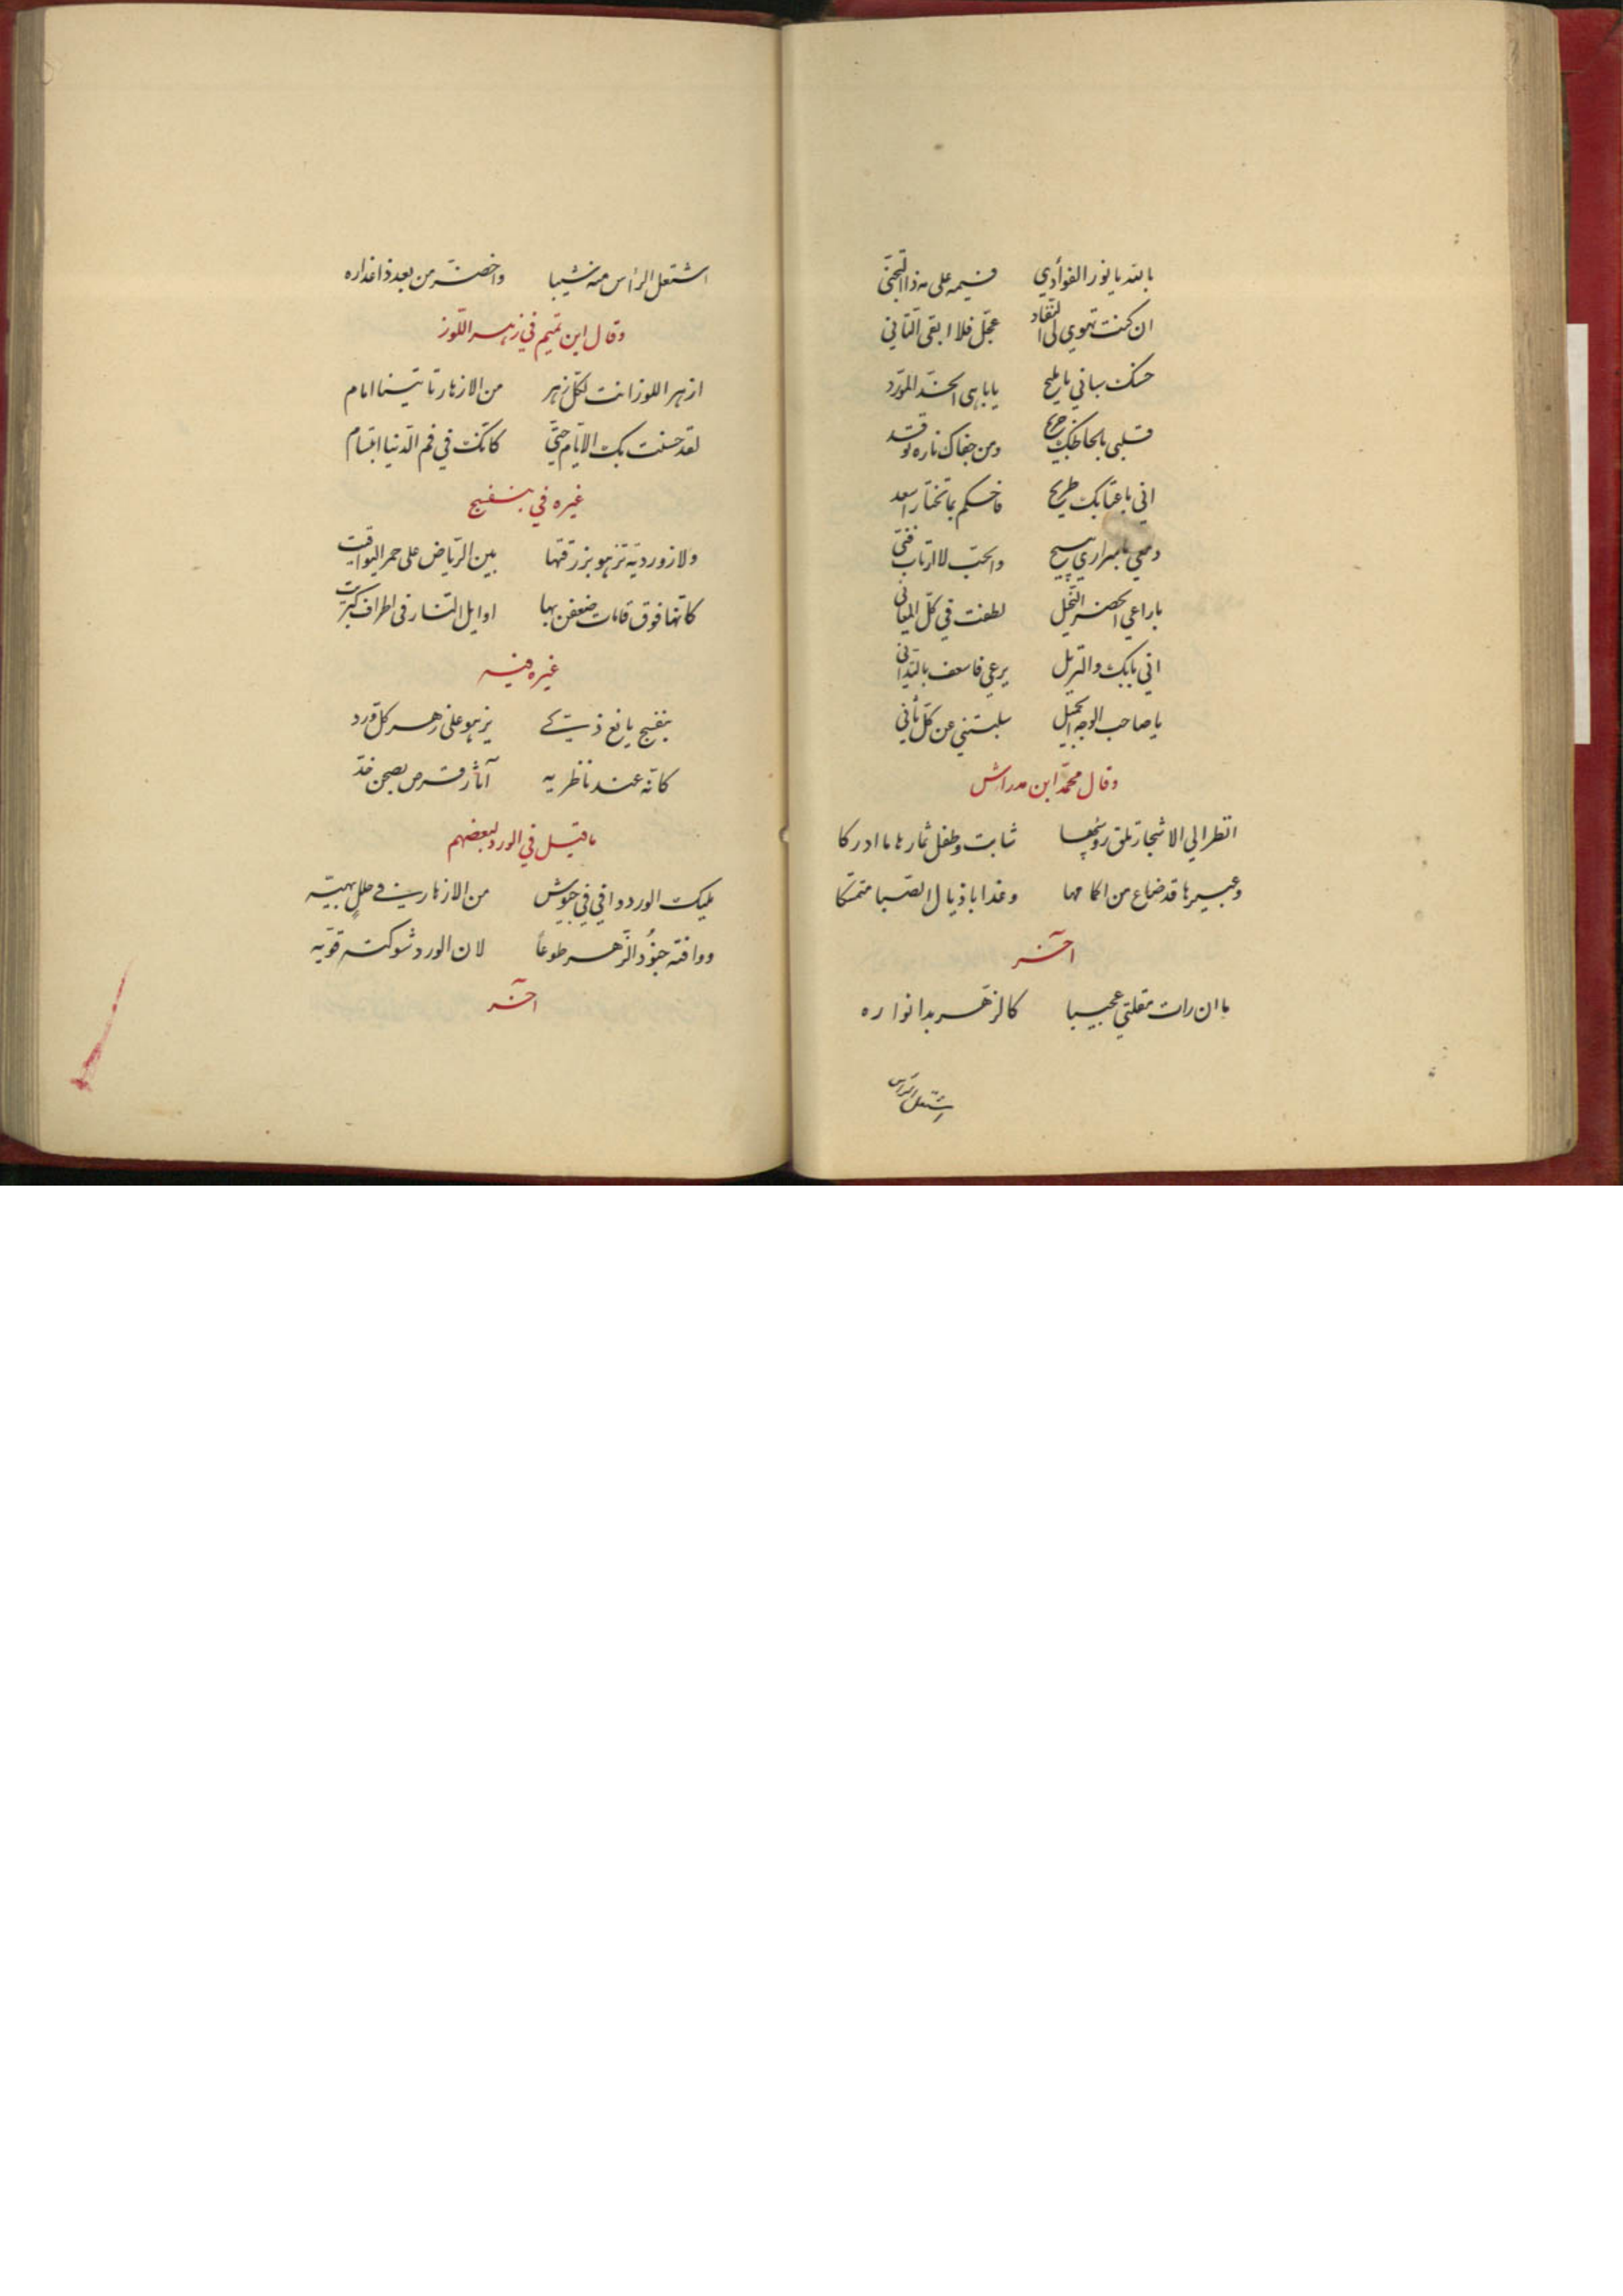 بالله يا نور الفوأدي فيمه على مه ذا التجنّي
ان كنت تهوي لي النفاد عجّل فلا ابقى التاني
حسنك سباني يا مليح يا باهى الخدّ المورّد
قلبي بالحاظك جريح ومن جفاك ناره توقد
اني باعتابك طريح فاحكم بما تختار اسعد
دمعي باسراري يبيح والحبّ لا ارتاب فنّي
يا راعي الخصر النّحيل لطفت في كلّ المعاني
اني ببابك والنزيل يرعى فاسعف بالتداني
يا صاحب الوجه الجميل سلبتني عن كلّ ثاني
وقال محمّد ابن مدراش
انظر الي الاشجار تلق روسها شابت وطفل ثمارها ما ادركا
وعبيرها قد ضاع من اكمامها وغدا باذيال الصّبا متمسّكا
اخر
ما ان رات مقلتي عجيبا كالزّهر بدا نواره
اشتعل الراس
اشتعل الراس منه شيبا واخضرّ من بعد ذا عذاره
وقال ابن تميم في زهر اللّوز
ازهر اللوز انت لكلّ زهر من الازهار تاتينا امام
لقد حسنت بك الايّام حتّي كانّك في فم الدّنيا ابتسام
غيره في بنفسج
ولازورديّة تزهو بزرقتها بين الرّياض على حمر اليواقيت
كانّها فوق قامات ضعفن بها اوايل النّار في اطراف كبريت
غيره فيه
بنفسج يانع ذكي يزهو على زهر كل ورد
كانّه عند ناظريه آثار قرص بصحن خدّ
ما قيل في الورد لبعضهم
مليك الورد وافي في جيوش من الازهار في حللٍ بهيّه
ووافته جنُود الزّهر طوعاً لان الورد شوكته قويّه
اخر